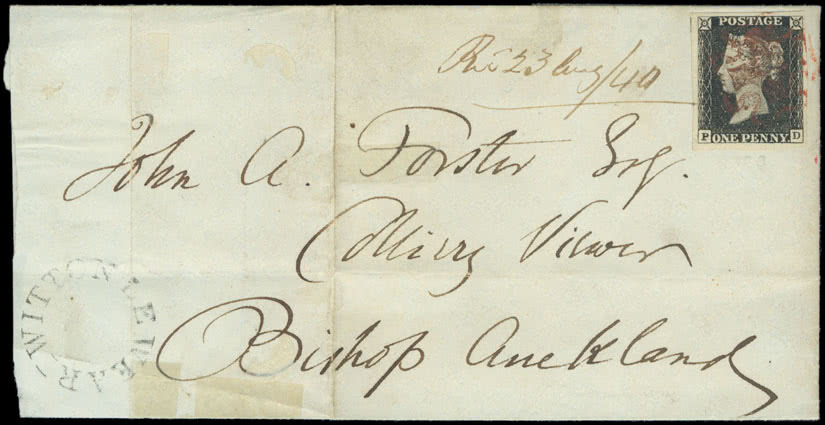 POSTAGE
P ONE PENNY D
Rec 23 Aug/40
John A. Forster Esq.
Colliery Viewer
Bishop Auckland
WITTON LE WEAR